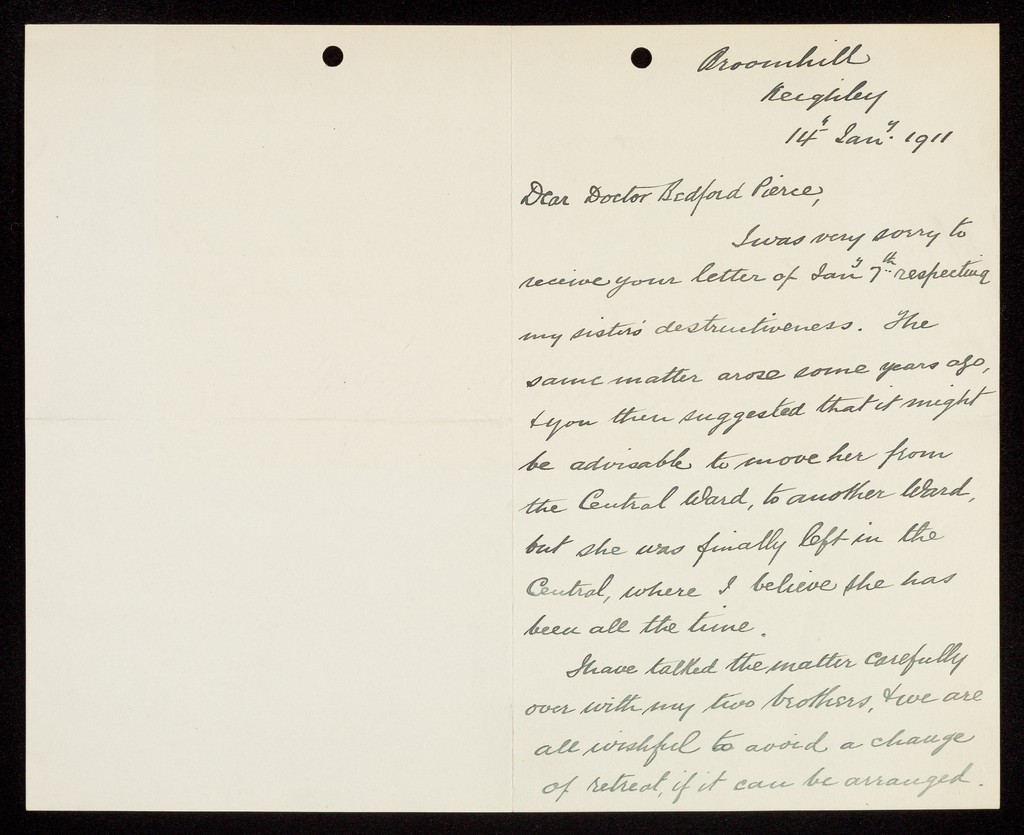 Broomhill
Keighley
14th Jany. 1911
Dear Doctor Bedford Pierce,
I was very sorry to
receive your letter of Jany 7th respecting
my sister's destructiveness. The
same matter arose some years ago,
& you then suggested that it might
be advisable to move her from
the Central Ward, to another Ward,
but she was finally left in the
Central, where I believe she has
been all the time.
I have talked the matter carefully
over with my two brothers, & we are
all wishful to avoid a change
of retreat, if it can be arranged.